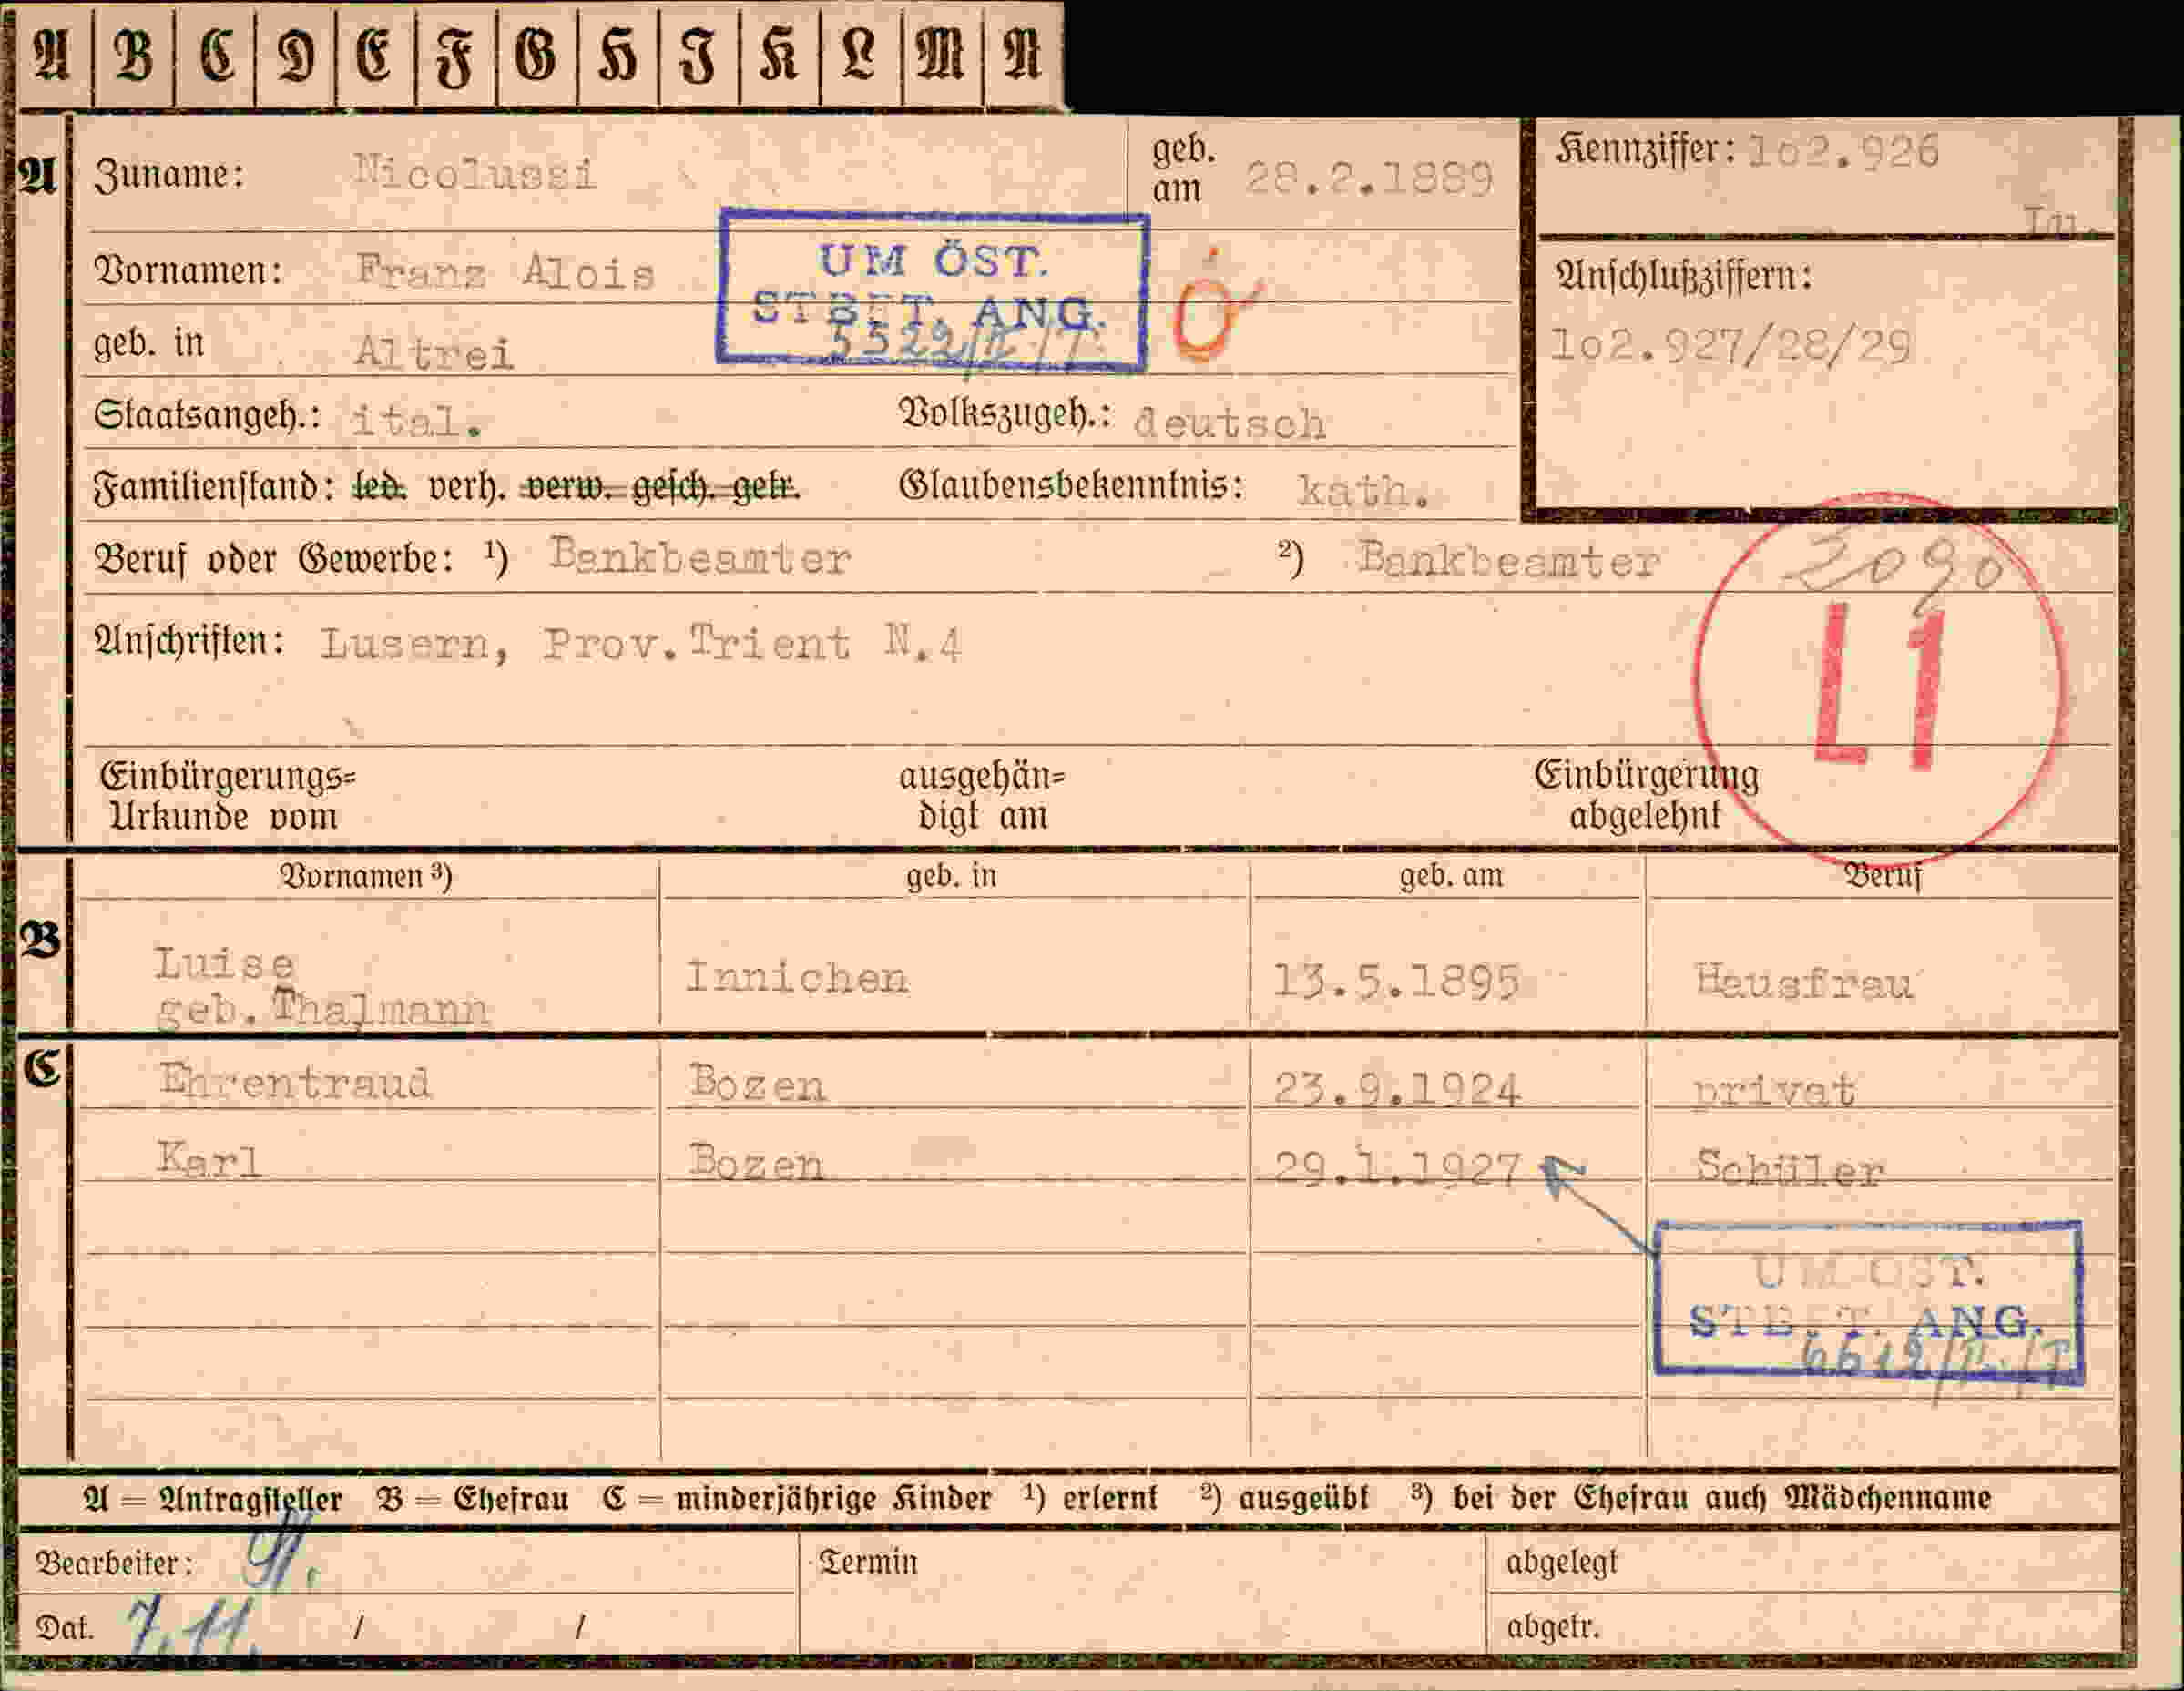 A B C D E F G H I K L M N
A Zuname: Nicolussi geb. am 28.2.1889 Kennziffer: 1o2.926
UM ÖST.
Vornamen: Franz Alois Anschlußziffern:
STBFT. ANG.
geb. in Altrei 1o2.927/28/29
Staatsangeh.: ital. Volkszugeh.: deutsch
Familienstand: led. verh. verw. gesch. getr. Glaubensbekenntnis: kath.
Beruf oder Gewerbe: ¹) Bankbeamter ²) Bankbeamter 2090
Anschriften: Lusern, Prov.Trient N.4
L1
Einbürgerungs= ausgehän= Einbürgerung
Urkunde vom digt am abgelehnt
Vornamen ³) geb. in geb. am Beruf
B Luise Innichen 13.5.1895 Hausfrau
geb.Thalmann
C Ehrentraud Bozen 23.9.1924 privat
Karl Bozen 29.1.1927 Schüler
UM ÖST.
STBFT. ANG.
A = Antragsteller B = Ehefrau C = minderjährige Kinder ¹) erlernt ²) ausgeübt ³) bei der Ehefrau auch Mädchenname
Bearbeiter: Termin abgelegt
Dat. 7.11. / / abgetr.